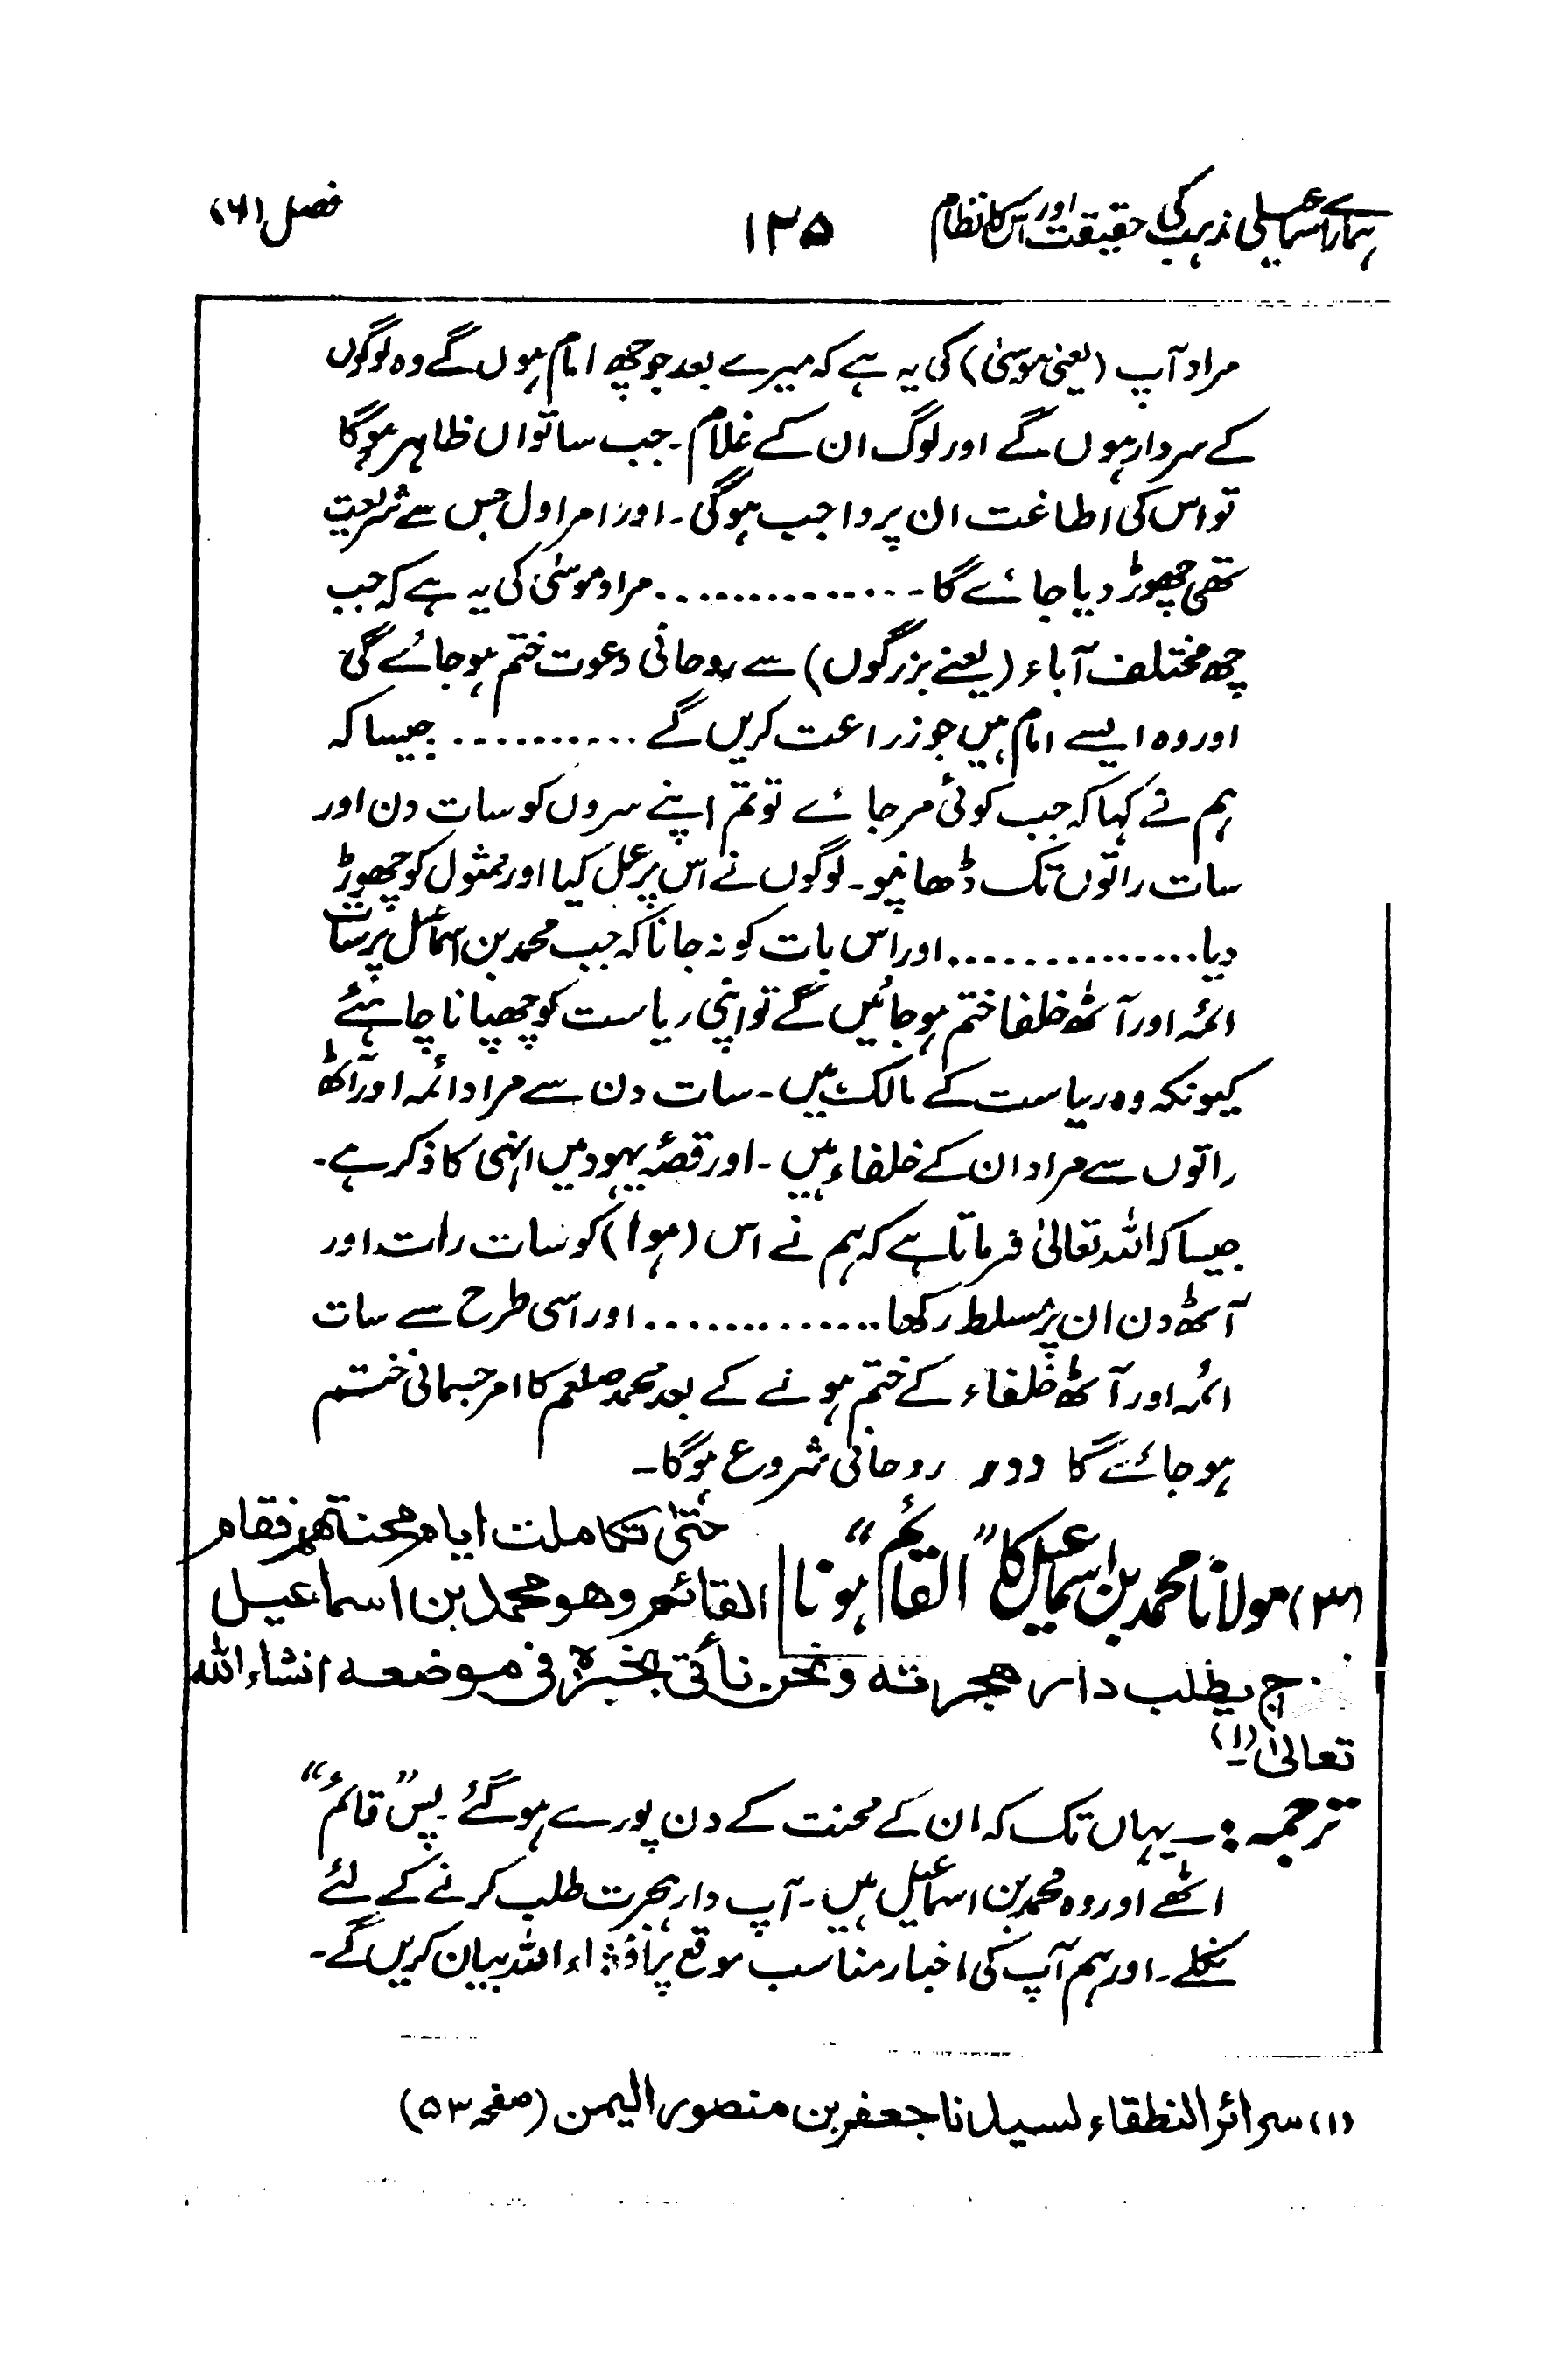 ہمارے اسماعیلی مذہب کی حقیقت اور اس کا نظام ۱۲۵ فصل (۶)
مراد آپ (یعنی موسیٰ) کی یہ ہے کہ میرے بعد جو چھ امام ہوں گے وہ لوگوں
کے سردار ہوں گے اور لوگ ان کے غلام۔ جب ساتواں ظاہر ہوگا
تو اس کی اطاعت ان پر واجب ہوگی۔ اور امر اول جس سے شریعت
تھی چھوڑ دیا جائے گا۔............. مراد موسیٰ کی یہ ہے کہ جب
چھ مختلف آباء (یعنے بزرگوں) سے روحانی دعوت ختم ہو جائے گی
اور وہ ایسے امام ہیں جو زراعت کریں گے .......... جیسا کہ
ہم نے کہا کہ جب کوئی مر جائے تو تم اپنے سروں کو سات دن اور
سات راتوں تک ڈھانپو۔ لوگوں نے اس پر عمل کیا اور ممثول کو چھوڑ
دیا............... اور اس بات کو نہ جانا کہ جب محمد بن اسماعیل پر سات
ائمہ اور آٹھ خلفا ختم ہو جائیں گے تو اپنی ریاست کو چھپانا چاہئے
کیونکہ وہ ریاست کے مالک ہیں۔ سات دن سے مراد ائمہ اور آٹھ
راتوں سے مراد ان کے خلفاء ہیں۔ اور قصۂ یہود میں انہی کا ذکر ہے۔
جیسا کہ اللہ تعالیٰ فرماتا ہے کہ ہم نے اس (ہوا) کو سات رات اور
آٹھ دن ان پر مسلط رکھا............. اور اسی طرح سے سات
ائمہ اور آٹھ خلفاء کے ختم ہونے کے بعد محمد صلعم کا امر جسمانی ختم
ہو جائے گا دور روحانی شروع ہوگا۔
(۳) مولانا محمد بن اسماعیل کا "القائم" ہونا
حتیٰ تکاملت ایام محنتھم فقام
القائم وھو محمد بن اسماعیل
یطلب دار ھجرتہ ونحن نأتی بخبرہ فی موضعہ انشاء اللہ
تعالیٰ (۱)
ترجمہ:۔ یہاں تک کہ ان کے محنت کے دن پورے ہو گئے۔ پس "قائم"
اٹھے اور وہ محمد بن اسماعیل ہیں۔ آپ دار ہجرت طلب کرنے کے لئے
نکلے۔ اور ہم آپ کی اخبار مناسب موقع پر انشاء اللہ بیان کریں گے۔
(۱) سرائر النطقاء لسیدنا جعفر بن منصور الیمن (صفحہ ۵۳)